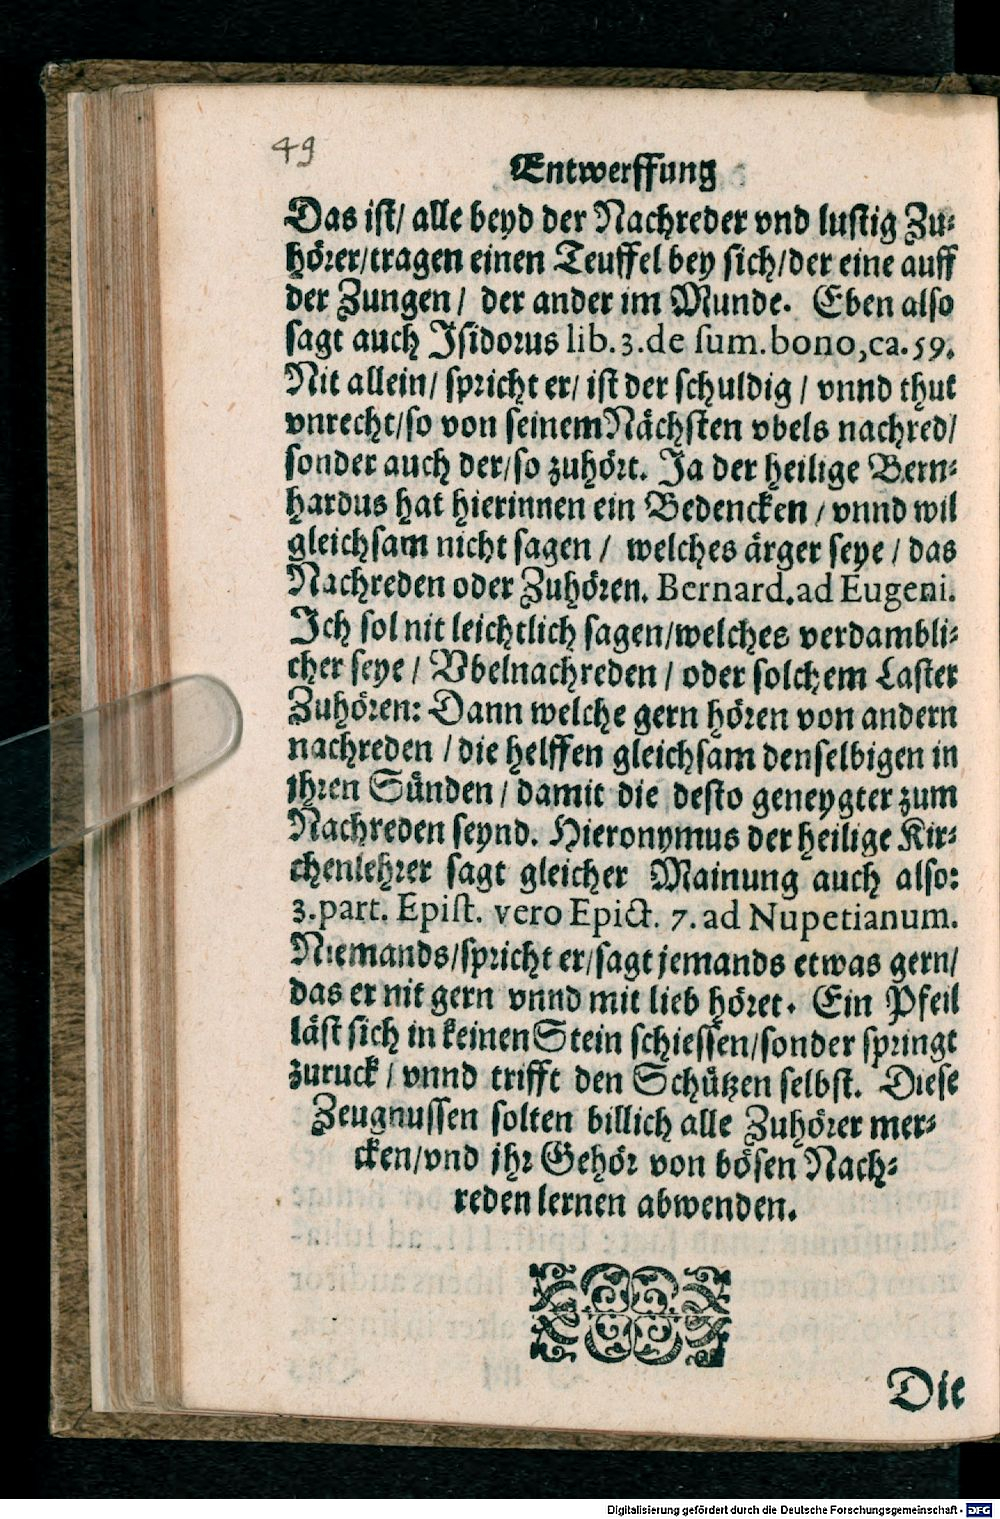 49
Entwerffung
Das ist/ alle beyd der Nachreder vnd lustig Zu-
hörer/tragen einen Teuffel bey sich/der eine auff
der Zungen/ der ander im Munde. Eben also
sagt auch Isidorus lib.3.de sum.bono,ca.59.
Nit allein/ spricht er/ ist der schuldig/ vnnd thut
vnrecht/so von seinem Nächsten vbels nachred/
sonder auch der/so zuhört. Ja der heilige Bern-
hardus hat hierinnen ein Bedencken/ vnnd wil
gleichsam nicht sagen/ welches ärger seye/ das
Nachreden oder Zuhören. Bernard.ad Eugeni.
Ich sol nit leichtlich sagen/welches verdambli-
cher seye/ Vbelnachreden/ oder solchem Laster
Zuhören: Dann welche gern hören von andern
nachreden/die helffen gleichsam denselbigen in
jhren Sünden/ damit die desto geneygter zum
Nachreden seynd. Hieronymus der heilige Kir-
chenlehrer sagt gleicher Mainung auch also:
3.part. Epist. vero Epict. 7.ad Nupetianum.
Niemands/spricht er/sagt jemands etwas gern/
das er nit gern vnnd mit lieb höret. Ein Pfeil
läst sich in keinen Stein schiessen/sonder springt
zuruck/ vnnd trifft den Schützen selbst. Diese
Zeugnussen solten billich alle Zuhörer mer-
cken/vnd jhr Gehör von bösen Nach-
reden lernen abwenden.
Die
Digitalisierung gefördert durch die Deutsche Forschungsgemeinschaft - DFG